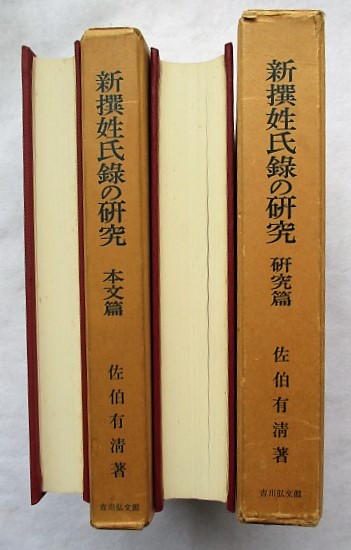 新撰姓氏錄の硏究 本文篇
佐伯有淸著
吉川弘文館
新撰姓氏錄の硏究 硏究篇
佐伯有淸著
吉川弘文館